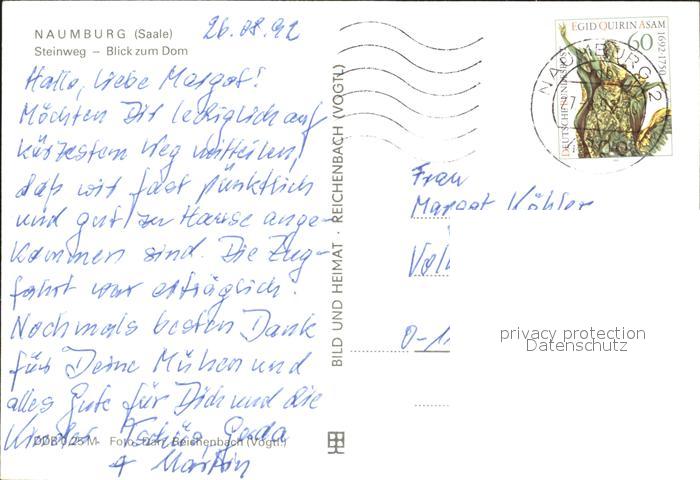 NAUMBURG (Saale)
Steinweg – Blick zum Dom
26.08.92
Hallo, liebe Margot!
Möchten Dir lediglich auf
kürzestem Weg mitteilen,
daß wir fast pünktlich
und gut zu Hause ange-
kommen sind. Die Zug-
fahrt war erträglich.
Nochmals besten Dank
für Deine Mühen und
alles Gute für Dich und die
Kinder Tschüs, Gerda
+ Martin
DDB 0,25 M Foto: Reichenbach (Vogtl)
BILD UND HEIMAT · REICHENBACH (VOGTL)
EGID QUIRIN ASAM
1692-1750
60
DEUTSCHE BUNDESPOST
NAUMBURG 2
Frau
Margot Köhler
O-11
privacy protection
Datenschutz